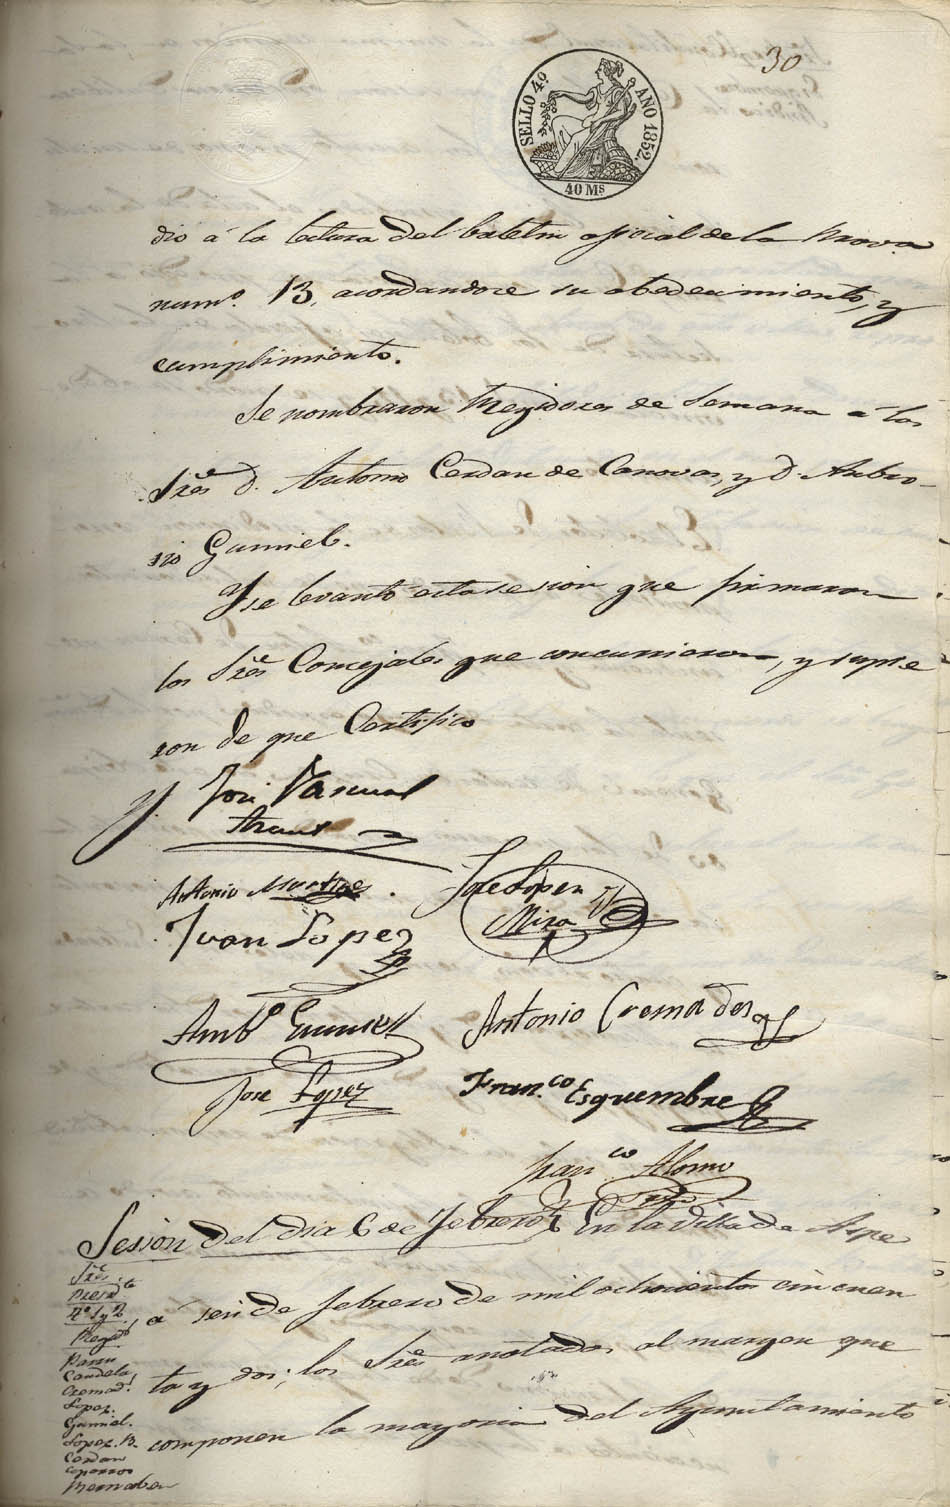 30
SELLO 4º. AÑO 1852.
40 Ms
dio á la lectura del boletin oficial de la Prova
numº. 13, acordandose su obedecimiento, y
cumplimiento.
Se nombraron Regidores de Semana á los
Sres. D. Antonio Cerdan de Canovas, y D. Ambro-
sio Gumiel.
Y se levantó esta sesion que firmaron
los Sres. Concejales que concurrieron, y supie
ron de que Certifico
José Pascual
Antonio Martinez.
Jose Lopez
Mira
Juan Lopez
Ambº Gumiel
Antonio Cremades
Jose Lopez
Fran.co Esquembre
Fran.co Alonso
Sesion del dia 6 de Febrero
En la Villa de Aspe
á seis de febrero de mil ochocientos cincuen
ta y dos; los Sres. anotados al margen que
componen la mayoria del Ayuntamiento
Sres.
Presidte
4º 1 y 2
Regds
Candela,
Cremads.
Lopez.
Gumiel.
Lopez. B.
Cerdan
Caparros
Bernabeu